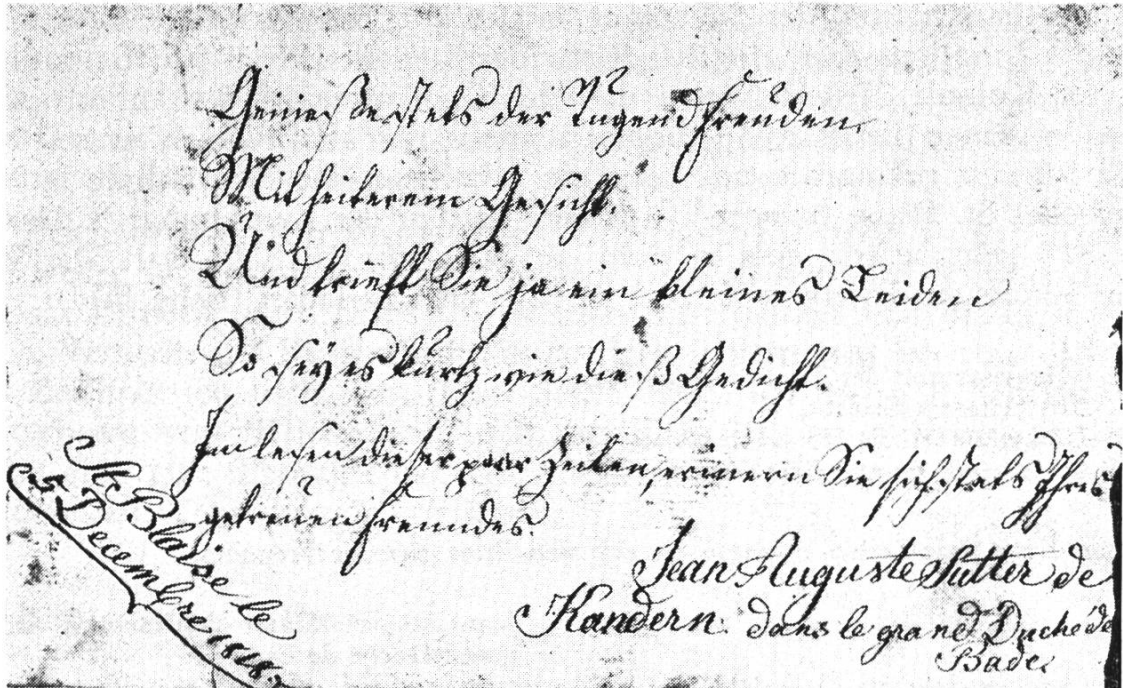 Genieße stets der Tugend Freuden.
Mit heiterem Gesicht,
Und trieft Sie ja ein kleines Leiden
So seÿ es kurtz wie dieß Gedicht.
Im lesen dieser paar Zeilen, erinern Sie sich stets Ihres
getreuen Freundes.
Jean Auguste Sutter de
Kandern. dans le grand Duché de
Bade.
St Blaise le
5 Decembre